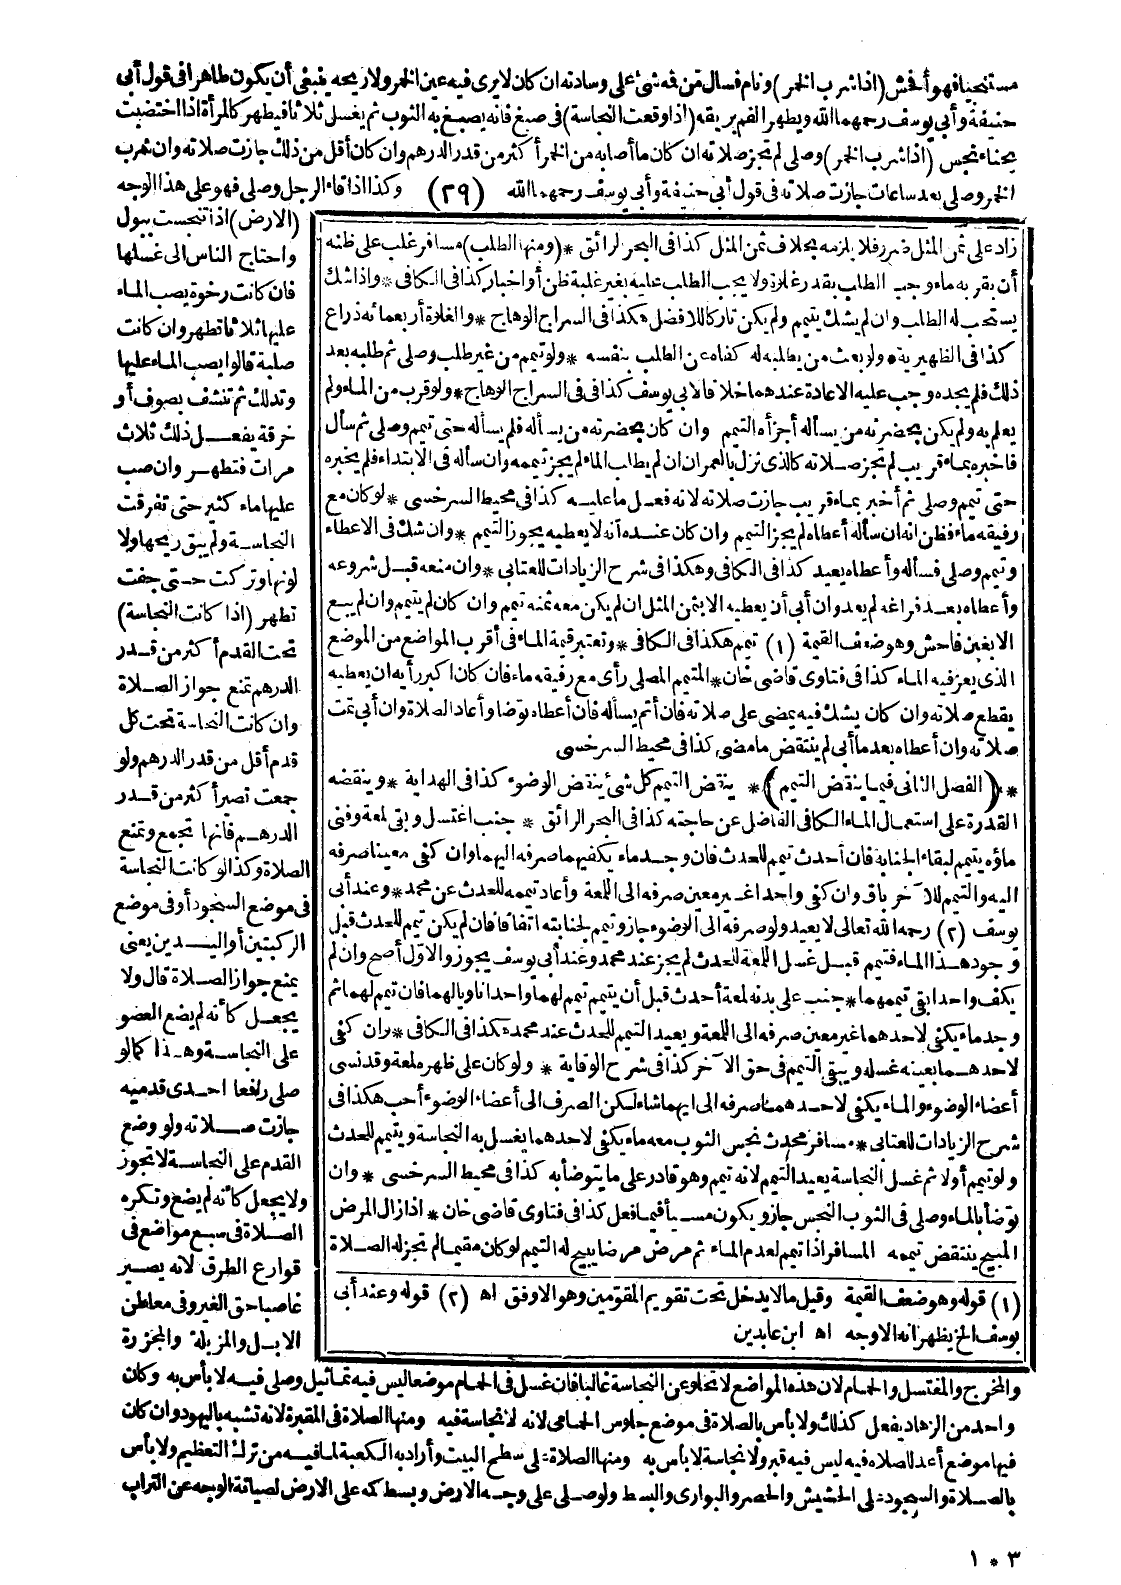 مستنجيا فهو أفحش (اذا شرب الخمر) ونام فسال من فمه شئ على وسادته ان كان لا يرى فيه عين الخمر ولا ريحه ينبغي أن يكون طاهرا في قول أبي
حنيفة وأبي يوسف رحمهما الله ويطهر الفم بريقه (اذا وقعت النجاسة) في صبغ فانه يصبغ به الثوب ثم يغسل ثلاثا فيطهر كالمرأة اذا اختضبت
بحناء نجس (اذا شرب الخمر) وصلى لم تجز صلاته ان كان ما أصابه من الخمر أكثر من قدر الدرهم وان كان أقل من ذلك جازت صلاته وان شرب
الخمر وصلى بعد ساعات جازت صلاته في قول أبي حنيفة وأبي يوسف رحمهما الله (٣٩) وكذا اذا قاء الرجل وصلى فهو على هذا الوجه
(الارض) اذا تنجست ببول
واحتاج الناس الى غسلها
فان كانت رخوة يصب الماء
عليها ثلاثا تطهر وان كانت
صلبة قالوا يصب الماء عليها
وتدلك ثم تنشف بصوف أو
خرقة يفعل ذلك ثلاث
مرات فتطهر وان صب
عليها ماء كثير حتى تفرقت
النجاسة ولم يبق ريحها ولا
لونها وتركت حتى جفت
تطهر (اذا كانت النجاسة)
تحت القدم أكثر من قدر
الدرهم تمنع جواز الصلاة
وان كانت النجاسة تحت كل
قدم أقل من قدر الدرهم ولو
جمعت تصير أكثر من قدر
الدرهم فانها تجمع وتمنع
الصلاة وكذا لو كانت النجاسة
في موضع السجود أو في موضع
الركبتين أو اليدين يعني
يمنع جواز الصلاة قال ولا
يجعل كأنه لم يضع العضو
على النجاسة وهذا كما لو
صلى رافعا احدى قدميه
جازت صلاته ولو وضع
القدم على النجاسة لا تجوز
ولا يجعل كأنه لم يضع وتكره
الصلاة في سبع مواضع في
قوارع الطرق لانه يصير
غاصبا حق الغير وفي معاطن
الابل والمزبلة والمجزرة
زاد على ثمن المثل ضرر فلا يلزمه بخلاف ثمن المثل كذا في البحر الرائق * (ومنها الطلب) مسافر غلب على ظنه
أن بقربه ماء وجب الطلب بقدر غلوة ولا يجب الطلب عليه بغير غلبة ظن أو اخبار كذا في الكافي * واذا شك
يستحب له الطلب وان لم يشك يتيمم ولم يكن تاركا للافضل هكذا في السراج الوهاج * والغلوة أربعمائة ذراع
كذا في الظهيرية * ولو بعث من يطلبه له كفاه عن الطلب بنفسه * ولو تيمم من غير طلب وصلى ثم طلبه بعد
ذلك فلم يجده وجب عليه الاعادة عندهما خلافا لابي يوسف كذا في السراج الوهاج * ولو قرب من الماء ولم
يعلم به ولم يكن بحضرته من يسأله أجزأه التيمم وان كان بحضرته من يسأله فلم يسأله حتى تيمم وصلى ثم سأل
فأخبره بماء قريب لم تجز صلاته كالذي نزل بالعمران ان لم يطلب الماء لم يجز تيممه وان سأله في الابتداء فلم يخبره
حتى تيمم وصلى ثم أخبر بماء قريب جازت صلاته لانه فعل ما عليه كذا في محيط السرخسي * لو كان مع
رفيقه ماء فظن انه ان سأله أعطاه لم يجز التيمم وان كان عنده أنه لا يعطيه يجوز التيمم * وان شك في الاعطاء
وتيمم وصلى فسأله وأعطاه يعيد كذا في الكافي وهكذا في شرح الزيادات للعتابي * وان منعه قبل شروعه
وأعطاه بعد فراغه لم يعد وان أبى أن يعطيه الا بثمن المثل ان لم يكن معه ثمنه تيمم وان كان لم يتيمم وان لم يبع
الا بغبن فاحش وهو ضعف القيمة (١) تيمم هكذا في الكافي * وتعتبر قيمة الماء في أقرب المواضع من الموضع
الذي يعز فيه الماء كذا في فتاوى قاضي خان * المتيمم المصلي رأى مع رفيقه ماء فان كان اكبر رأيه ان يعطيه
يقطع صلاته وان كان يشك فيه يمضي على صلاته فان أتم يسأله فان أعطاه توضأ وأعاد الصلاة وان أبى تمت
صلاته وان أعطاه بعد ما أبى لم ينتقض ما مضى كذا في محيط السرخسي
* (الفصل الثاني فيما ينقض التيمم) * ينقض التيمم كل شئ ينقض الوضوء كذا في الهداية * وينقضه
القدرة على استعمال الماء الكافي الفاضل عن حاجته كذا في البحر الرائق * جنب اغتسل وبقي لمعة وفني
ماؤه يتيمم لبقاء الجنابة فان أحدث تيمم للحدث فان وجد ماء يكفيهما صرفه اليهما وان كفى معينا صرفه
اليه والتيمم للآخر باق وان كفى واحدا غير معين صرفه الى اللمعة وأعاد تيممه للحدث عن محمد * وعند أبي
يوسف (٢) رحمه الله تعالى لا يعيد ولو صرفه الى الوضوء جاز وتيمم لجنابته اتفاقا فان لم يكن تيمم للحدث قبل
وجود هذا الماء فتيمم قبل غسل اللمعة للحدث لم يجز عند محمد وعند أبي يوسف يجوز والاول أصح وان لم
يكف واحدا بقي تيممهما * جنب على بدنه لمعة أحدث قبل أن يتيمم تيمم لهما واحدا ناويا لهما فان تيمم لهما ثم
وجد ماء يكفي لاحدهما غير معين صرفه الى اللمعة ويعيد التيمم للحدث عند محمد هكذا في الكافي * وان كفى
لاحدهما بعينه غسله ويبقى التيمم في حق الآخر كذا في شرح الوقاية * ولو كان على ظهره لمعة وقد نسي
أعضاء الوضوء والماء يكفي لاحدهما صرفه الى ايهما شاء لكن الصرف الى أعضاء الوضوء أحب هكذا في
شرح الزيادات للعتابي * مسافر محدث نجس الثوب معه ماء يكفي لاحدهما يغسل به النجاسة ويتيمم للحدث
ولو تيمم أولا ثم غسل النجاسة يعيد التيمم لانه تيمم وهو قادر على ما يتوضأ به كذا في محيط السرخسي * وان
توضأ بالماء وصلى في الثوب النجس جاز ويكون مسيأ فيما فعل كذا في فتاوى قاضي خان * اذا زال المرض
المبيح ينتقض تيممه المسافر اذا تيمم لعدم الماء ثم مرض مرضا يبيح له التيمم لو كان مقيما لم تجز له الصلاة
(١) قوله وهو ضعف القيمة وقيل ما لا يدخل تحت تقويم المقومين وهو الاوفق اه (٢) قوله وعند أبي
يوسف الخ يظهر انه الاوجه اه ابن عابدين
والمخرج والمغتسل والحمام لان هذه المواضع لا تخلو عن النجاسة غالبا فان غسل في الحمام موضعا ليس فيه تماثيل وصلى فيه لا بأس به وكان
واحد من الزهاد يفعل كذلك ولا بأس بالصلاة في موضع جلوس الحمامي لانه لا نجاسة فيه ومنها الصلاة في المقبرة لانه تشبه باليهود وان كان
فيها موضع أعد للصلاة فيه ليس فيه قبر ولا نجاسة لا بأس به ومنها الصلاة على سطح البيت وأراد به الكعبة لما فيه من ترك التعظيم ولا بأس
بالصلاة والسجود على الحشيش والحصر والبواري والبسط ولو صلى على وجه الارض وبسط كمه على الارض لصيانة الوجه عن التراب
١٠٣